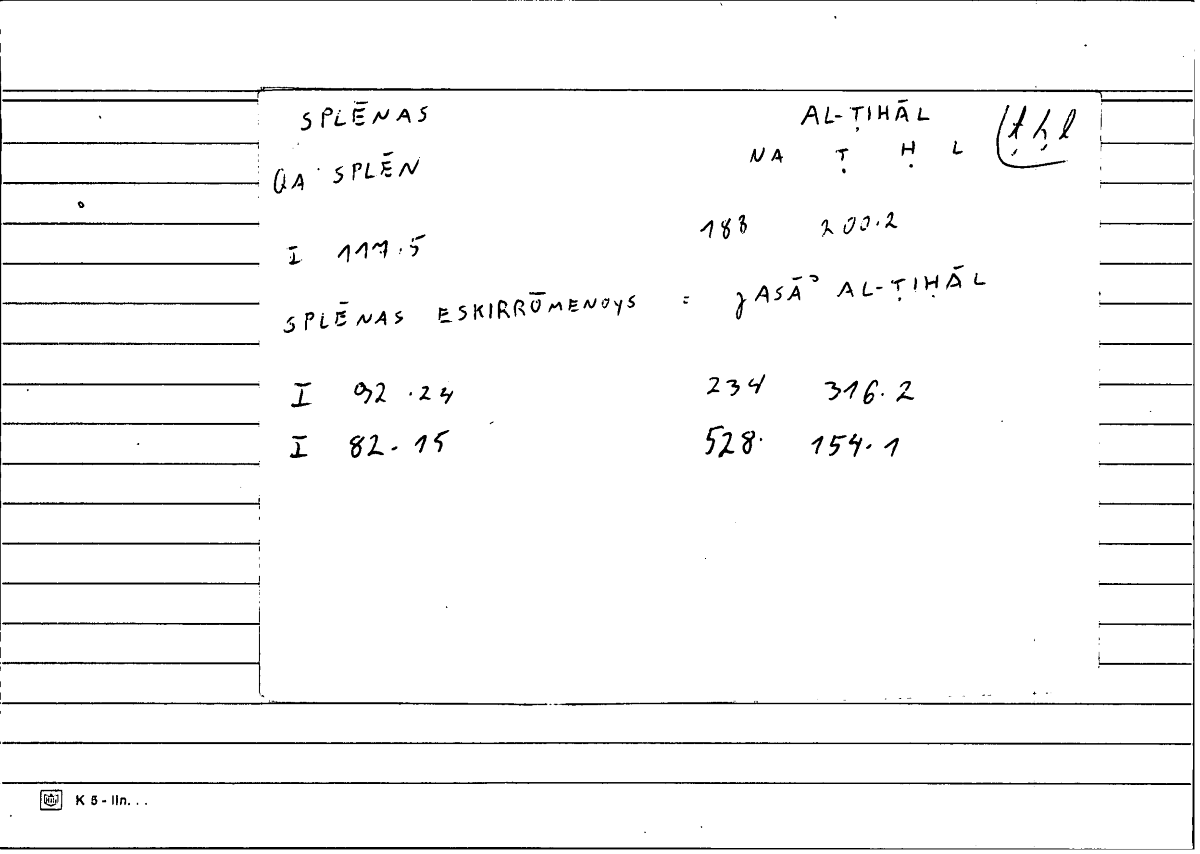 SPLĒNAS AL-ṬIHĀL (ṭḥl
QA SPLĒN NA Ṭ Ḥ L
I 117.5 183 200.2
SPLĒNAS ESKIRRŌMENOYS = ǧASĀʾ AL-ṬIḤĀL
I 92.24 234 316.2
I 82.15 528. 154.1
K 5 - IIn...